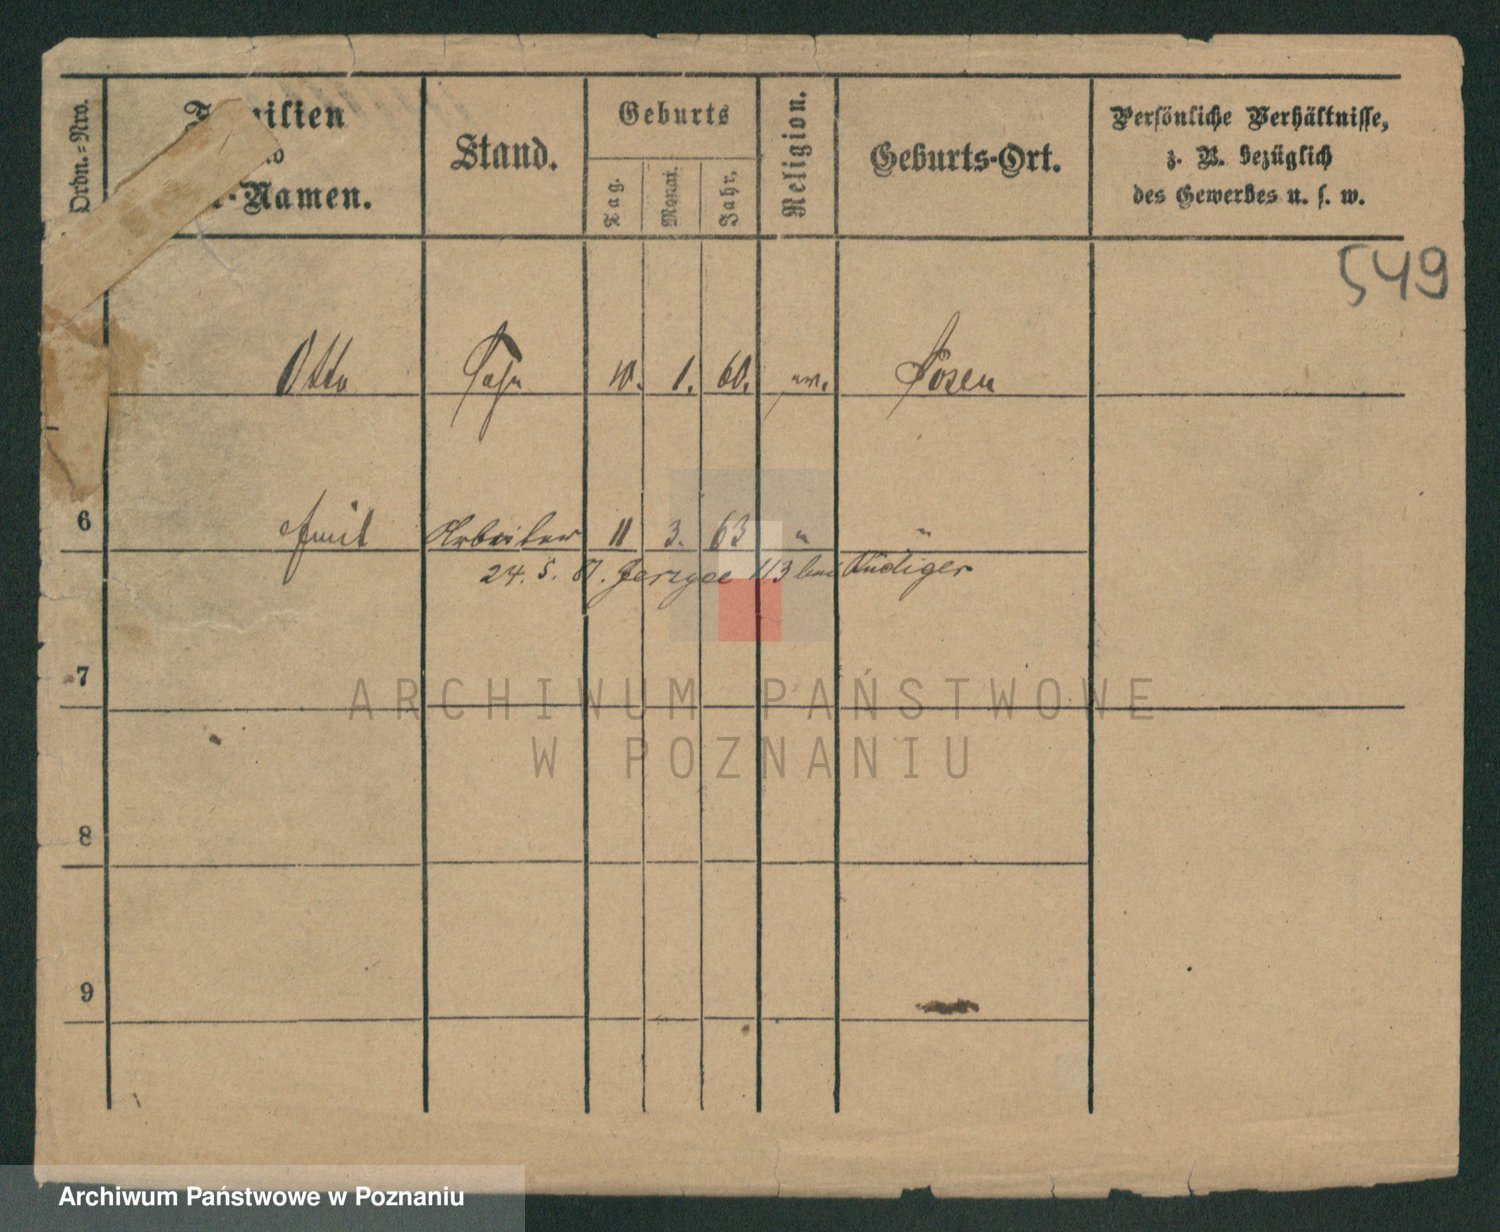 Ordn.-Nro.
ilien
-Namen.
Stand.
Geburts
Tag.
Monat.
Jahr.
Religion.
Geburts-Ort.
Persönliche Verhältnisse,
z. B. bezüglich
des Gewerbes u. s. w.
549
Otto Sohn 10. 1. 60. Posen
6 Emil Arbeiter 11 3. 63 " "
24. 5. 81. Jerzyce 113 bei Rüdiger
7
ARCHIWUM PAŃSTWOWE
W POZNANIU
8
9
Archiwum Państwowe w Poznaniu